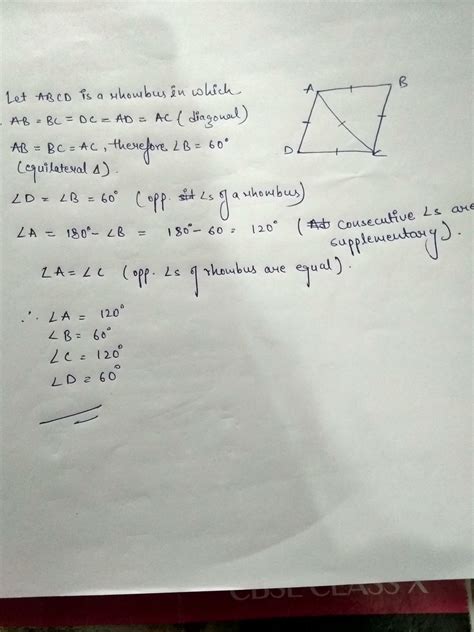 Let ABCD is a rhombus in which
AB = BC = DC = AD = AC (diagonal)
AB = BC = AC, therefore ∠B = 60°
(equilateral Δ).
∠D = ∠B = 60° (opp. ∠s of a rhombus)
∠A = 180° - ∠B = 180° - 60 = 120° ( consecutive ∠s are
supplementary).
∠A = ∠C (opp. ∠s of rhombus are equal).
∴ ∠A = 120°
∠B = 60°
∠C = 120°
∠D = 60°
A
B
D
CBSE CLASS X